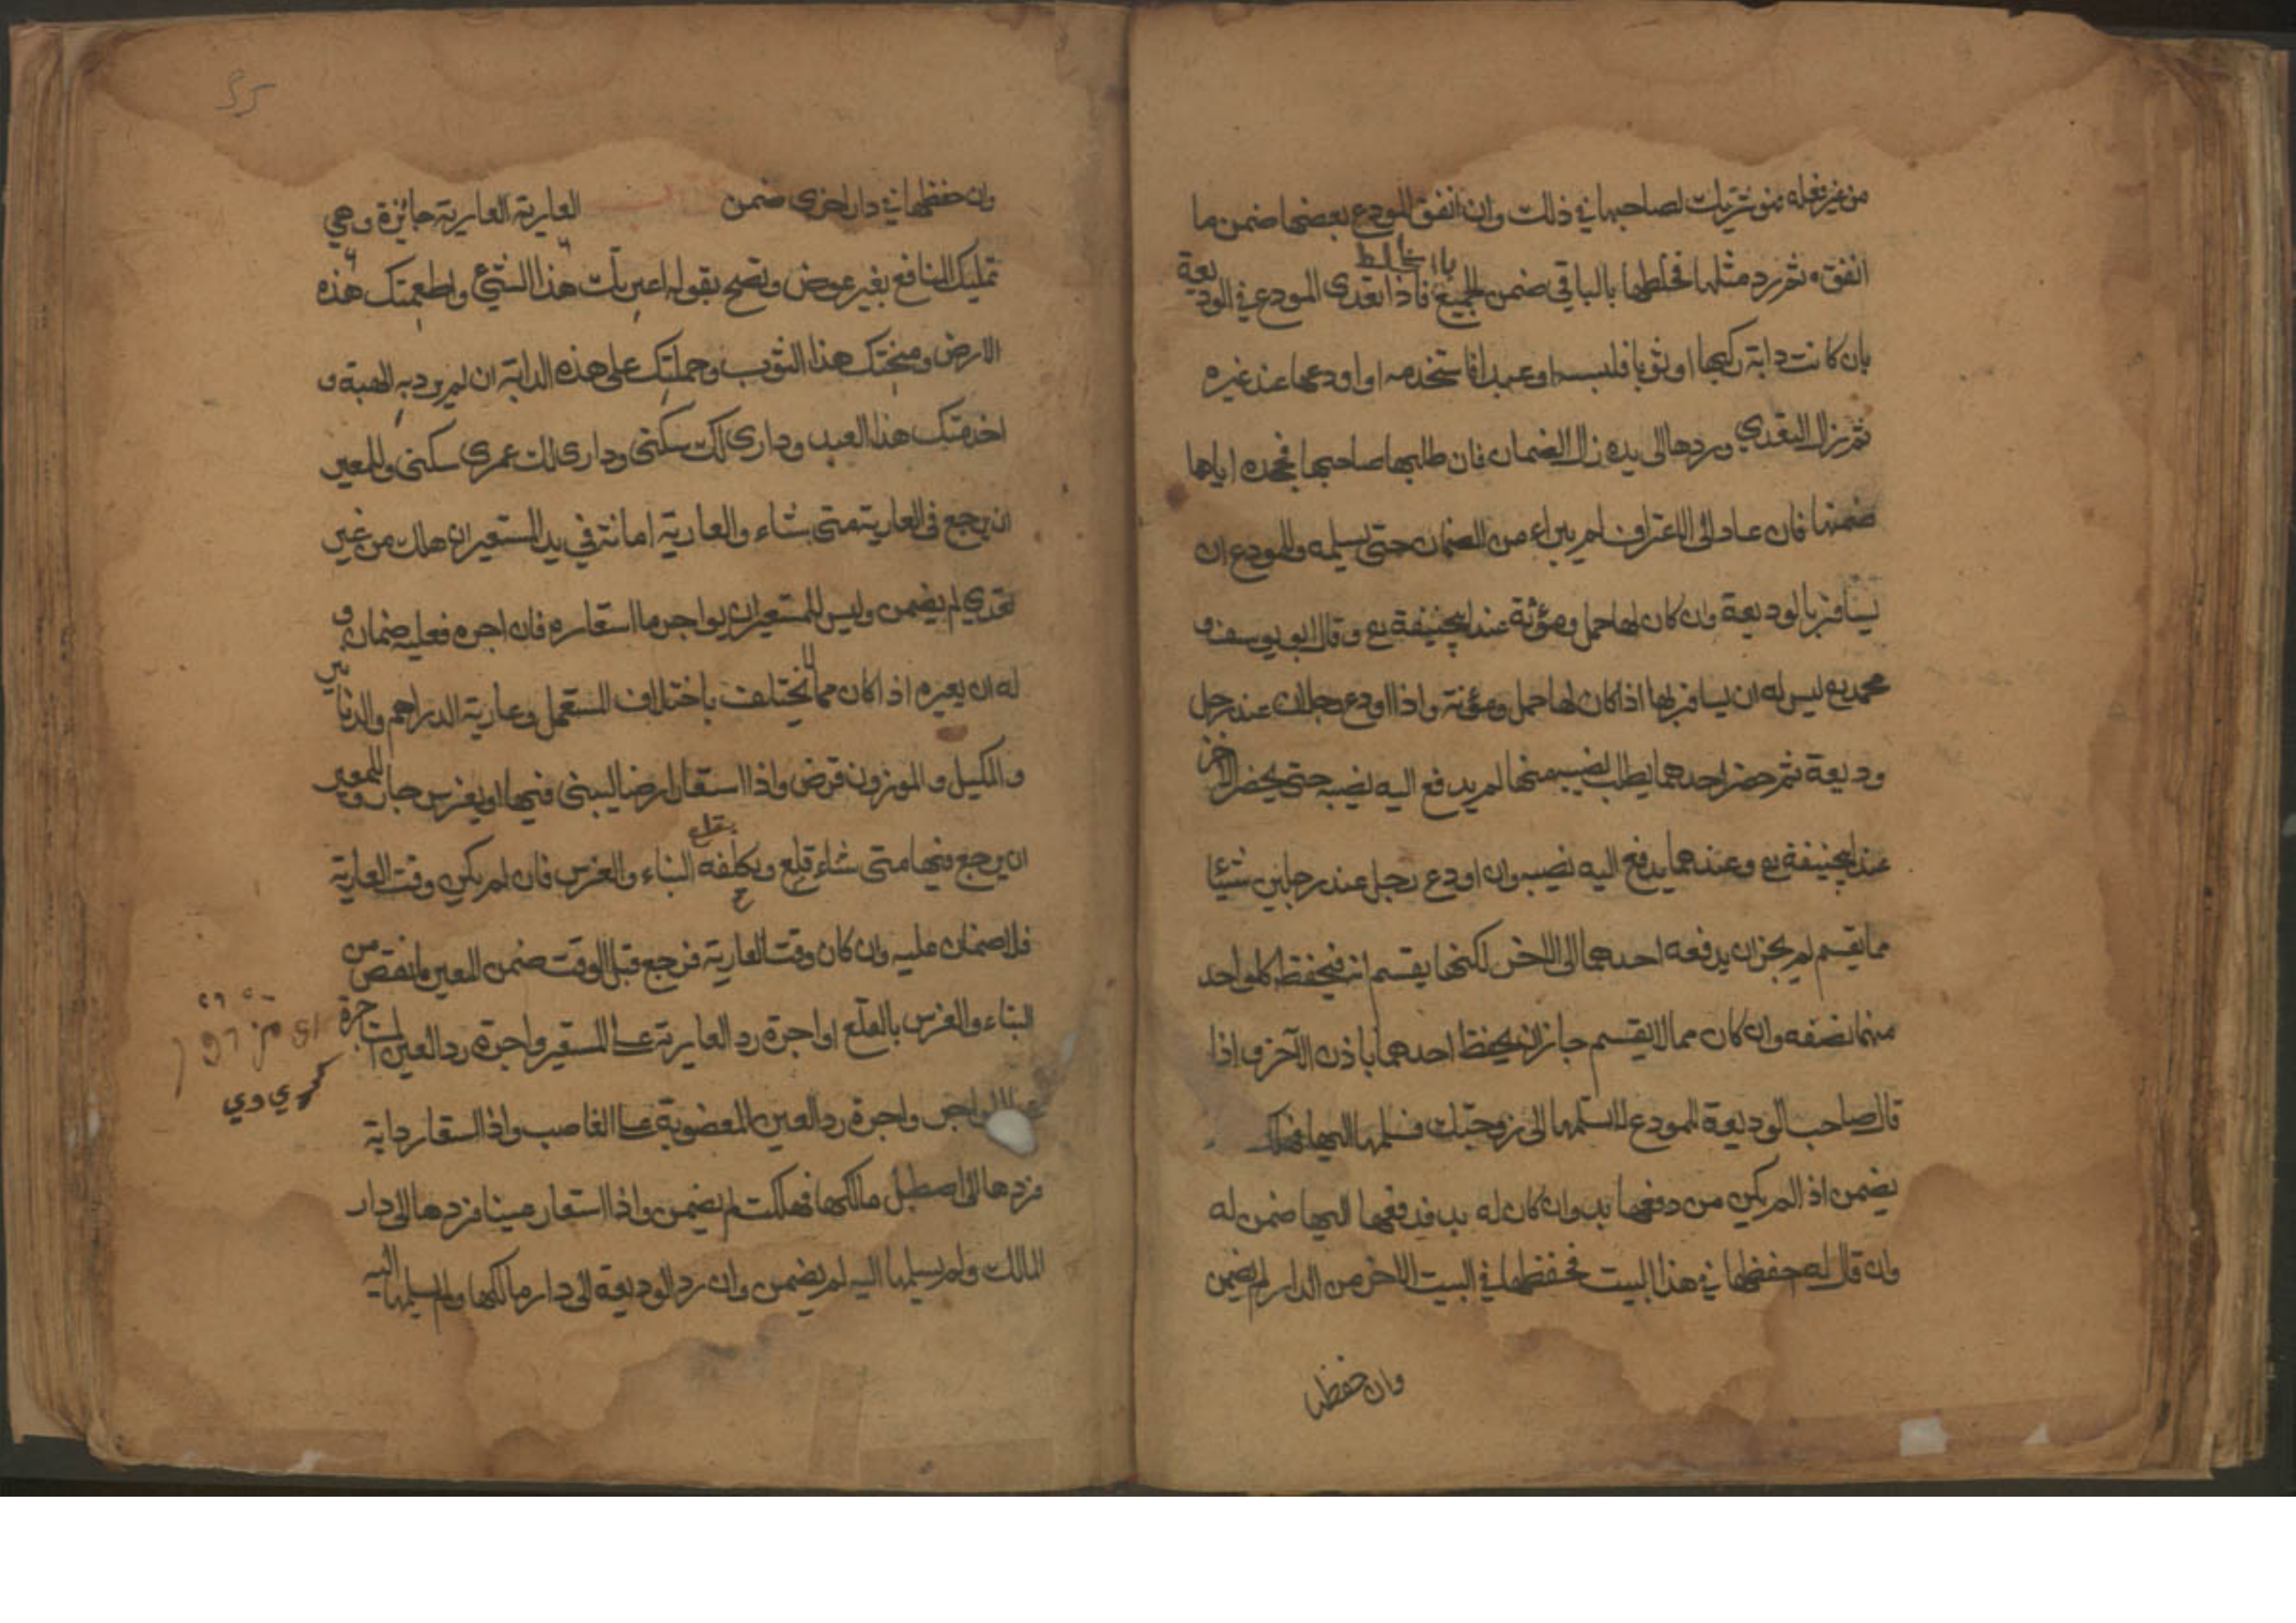 من غير فعله فهو شريك لصاحبها في ذلك وان انفق المودع بعضها ضمن ما
انفقه ثم رد مثلها فخلطها بالباقي ضمن الجميع بالخلط فاذا تعدى المودع في الوديعة
بان كانت دابة ركبها او ثوبا فلبسه او عبدا فاستخدمه او اودعها عند غيره
ثم زال التعدي وردها الى يده زال الضمان فان طلبها صاحبها فجحده اياها
ضمنها فان عاد الى الاعتراف لم يبراء من الضمان حتى يسلمه وللمودع ان
يسافر بالوديعة وان كان لها حمل ومؤنة عند ابيحنيفة رح وقال ابو يوسف و
محمد رح ليس له ان يسافر بها اذا كان لها حمل ومؤنة واذا اودع رجلان عند رجل
وديعة ثم حضر احدهما يطلب نصيبه منها لم يدفع اليه نصيبه حتى يحضر الاخر
عند ابيحنيفة رح وعندهما يدفع اليه نصيبه وان اودع رجل عند رجلين شيئا
مما يقسم لم يجز ان يدفعه احدهما الى الاخر لكنها يقسم انه فيحفظ كلواحد
منهما نصفه وان كان مما لا يقسم جاز ان يحفظ احدهما باذن الآخر واذا
قال صاحب الوديعة للمودع لا تسلمها الى زوجتك فسلمها اليها فهلك
يضمن اذا لم يكن من دفعها بد وان كان له بد فدفعها اليها ضمن له
وان قال له احفظها في هذا البيت فحفظها في البيت الاخر من الدار لم يضمن
وان حفظها
وان حفظها في دار اخرى ضمن كتاب العارية العارية جائزة وهي
تمليك المنافع بغير عوض وتصح بقوله اعيرتك هذا الشيئ واطعمتك هذه
الارض ومنحتك هذا الثوب وحملتك على هذه الدابة ان لم يرد به الهبة و
اخدمتك هذا العبد وداري لك سكنى وداري لك عمرى سكنى وللمعير
ان يرجع في العارية متى شاء والعارية امانة في يد المستعير ان هلك من غير
تعدي لم يضمن وليس للمستعير ان يواجر ما استعاره فان اجره فعليه ضمان و
له ان يعيره اذا كان مما لا يختلف باختلاف المستعمل وعارية الدراهم والدنانير
والمكيل والموزون قرض واذا استعار ارضا ليبنى فيها او يغرس جاز وللمعير
ان يرجع فيها متى شاء قلع ويكلفه بقلع البناء والغرس فان لم يكن وقت العارية
فلا ضمان عليه وان كان وقت العارية فرجع قبل الوقت ضمن المعير ما نقص من
البناء والغرس بالقلع او اجرة رد العارية على المستعير واجرة رد العين المستاجرة
على المواجر واجرة رد العين المغصوبة على الغاصب واذا استعار دابة
فردها الى اصطبل مالكها فهلكت لم يضمن واذا استعار عينا فردها الى دار
المالك ولم يسلمها اليه لم يضمن وان رد الوديعة الى دار مالكها ولم يسلمها اليه